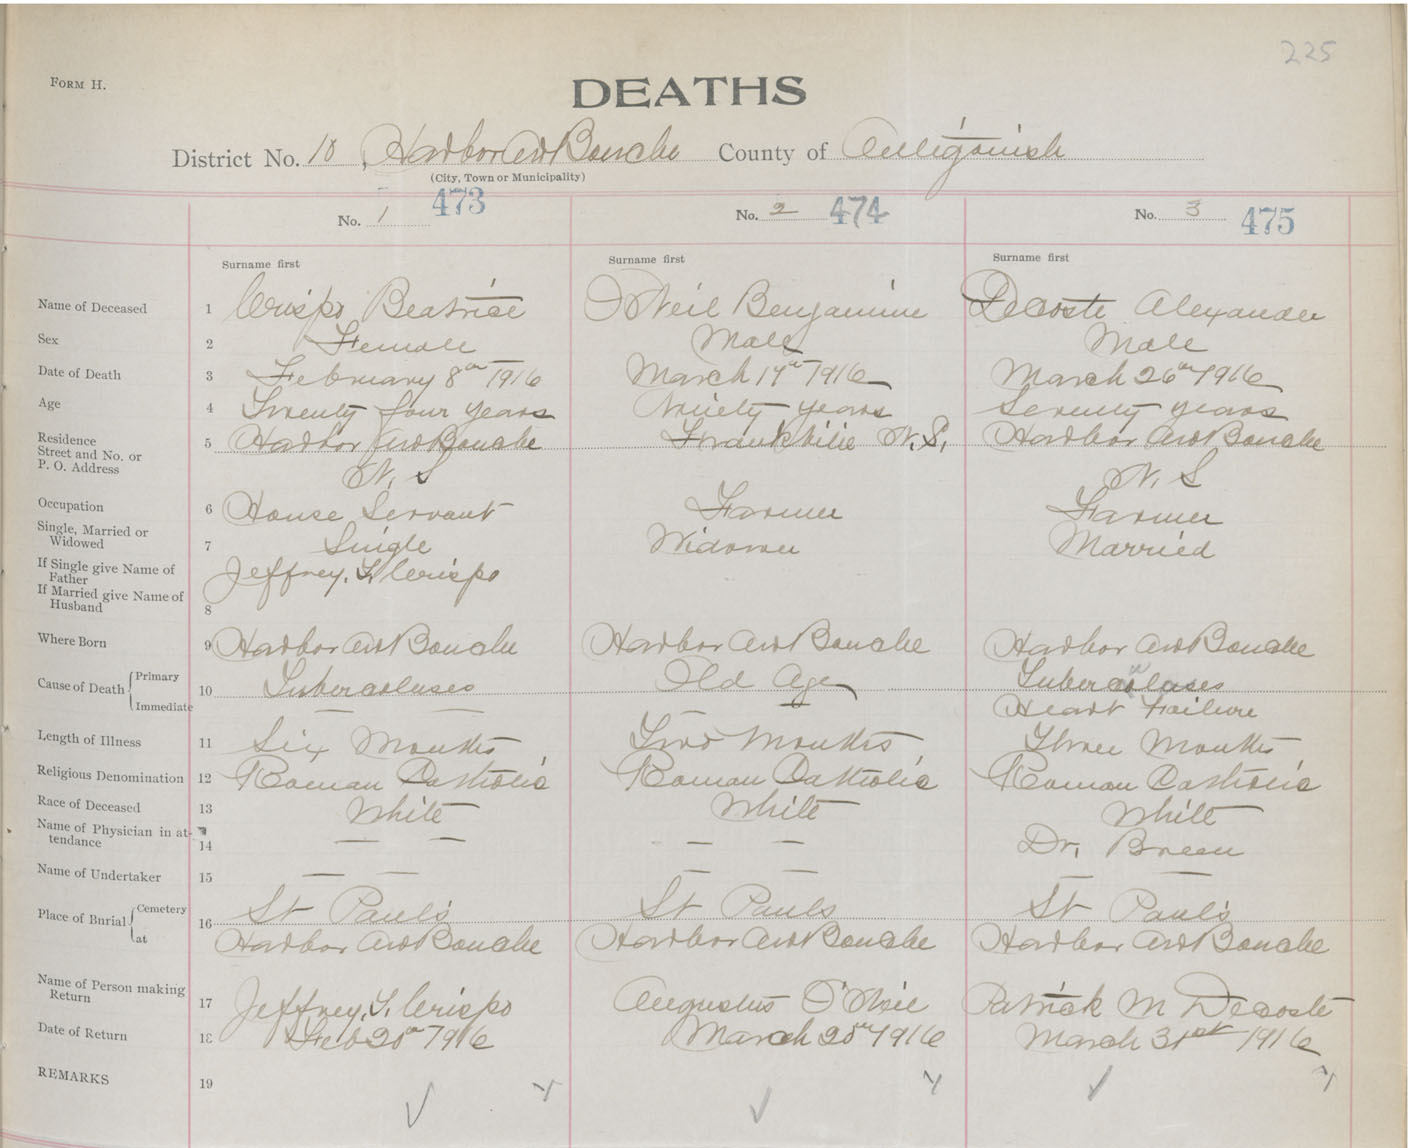 225
FORM H.
DEATHS
District No. 10, Harbor au Bouche County of Antigonish
(City, Town or Municipality)
No. 1 473 No. 2 474 No. 3 475
Surname first Surname first Surname first
Name of Deceased 1 Crispo Beatrice O Neil Benjamine Decoste Alexander
Sex 2 Female Male Male
Date of Death 3 February 8th 1916 March 17th 1916 March 26th 1916
Age 4 Twenty four years Ninety years Seventy years
Residence Street and No. or P. O. Address 5 Harbor au Bouche Frankville N.S. Harbor au Bouche
N. S N. S
Occupation 6 House Servant Farmer Farmer
Single, Married or Widowed 7 Single Widower Married
If Single give Name of Father Jeffrey. T. Crispo
If Married give Name of Husband 8
Where Born 9 Harbor au Bouche Harbor au Bouche Harbor au Bouche
Cause of Death Primary 10 Tuberculuses Old Age Tuberculuses
Immediate — — — Heart Failure
Length of Illness 11 Six Months Two Months Three Months
Religious Denomination 12 Roman Catholic Roman Catholic Roman Catholic
Race of Deceased 13 White White White
Name of Physician in attendance 14 — — — — Dr. Breen
Name of Undertaker 15 — — — — — —
Place of Burial Cemetery 16 St Paul's St Pauls St Paul's
at Harbor au Bouche Harbor au Bouche Harbor au Bouche
Name of Person making Return 17 Jeffrey. T. Crispo Augustus O'Neil Patrick M Decoste
Date of Return 18 Feb 20th 1916 March 20th 1916 March 31st 1916
REMARKS 19